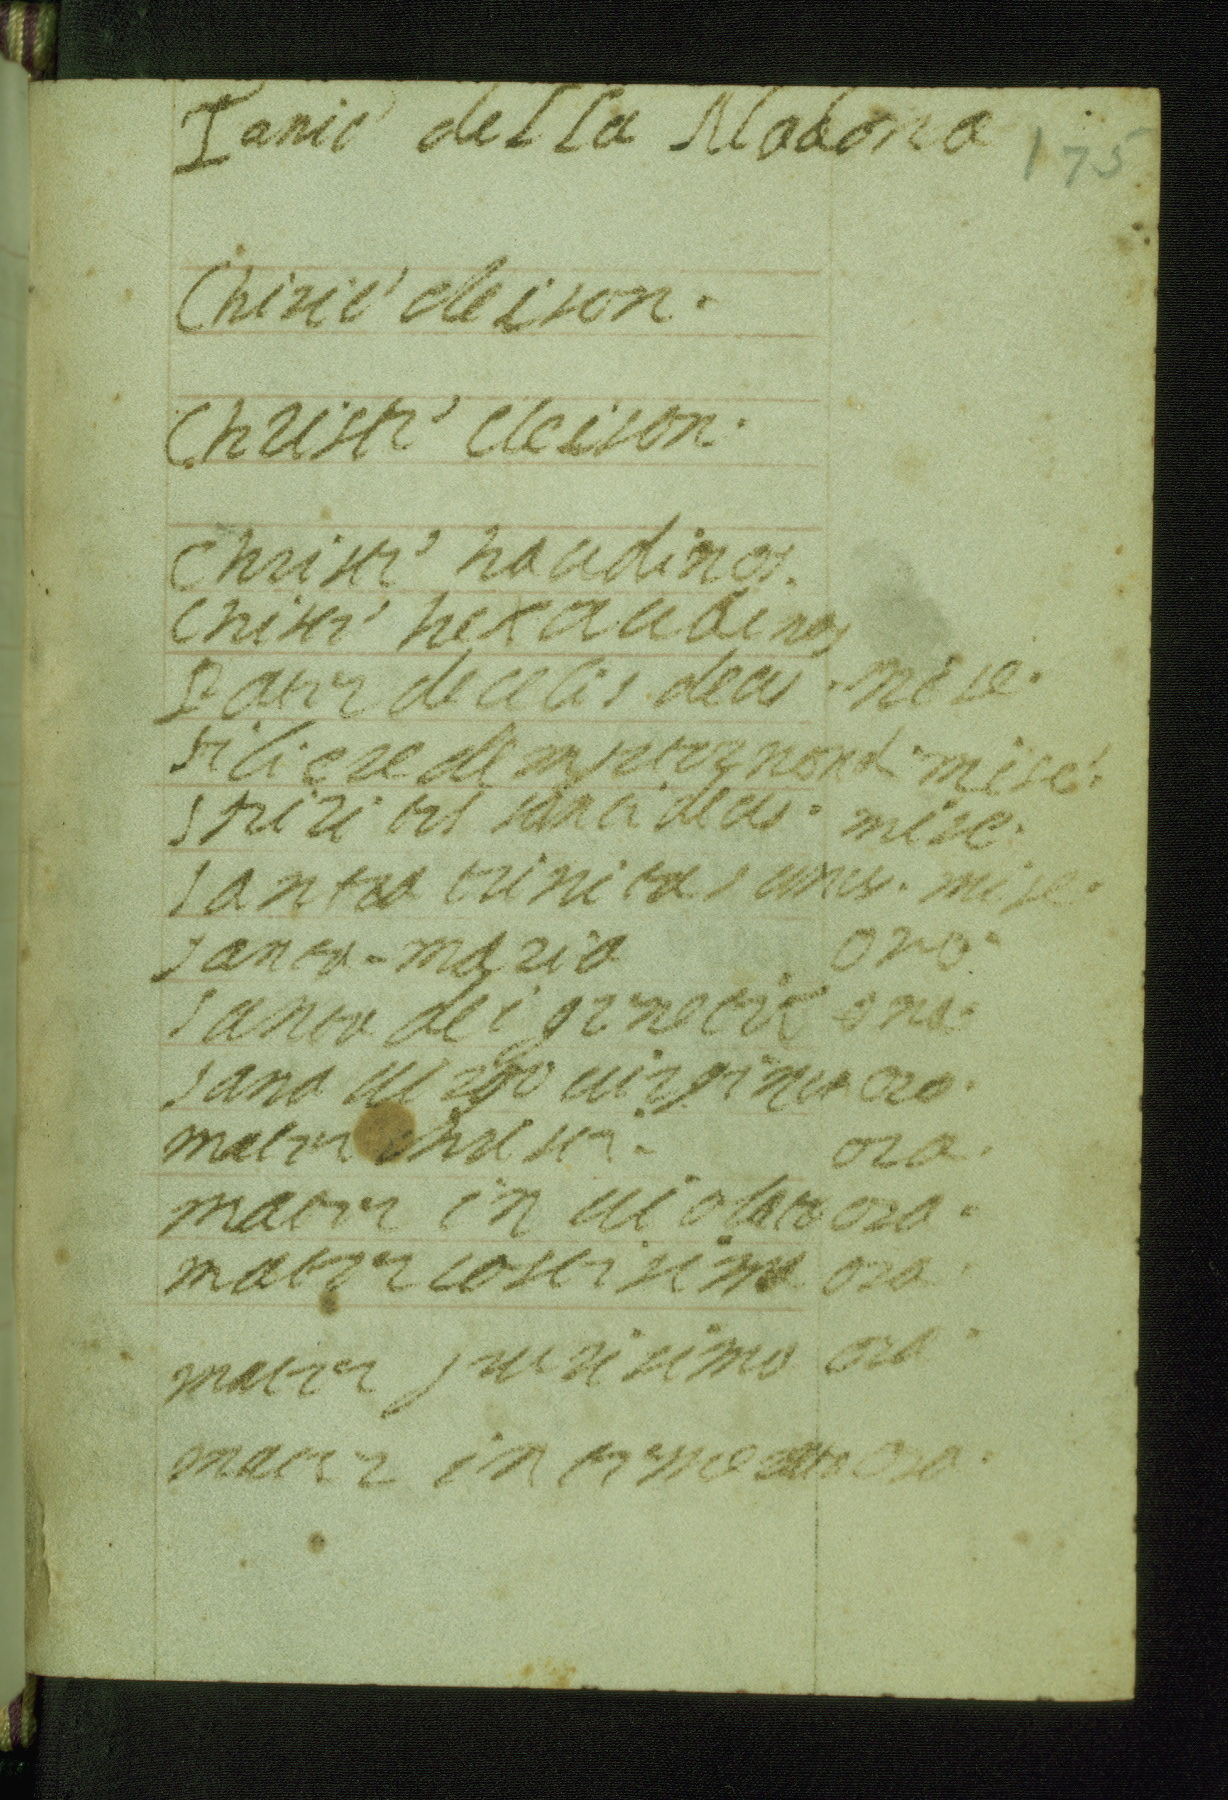 Tanie della Madona 175
Chirie eleison.
Christe eleison.
Christe haudinos.
Christe hexaudinos
Pater de celis deus. mise.
filie redemptor mondi mise.
spiritus deus. mise.
santa trinitas unus. mise.
santa-maria ora
santa dei genetrix ora.
sana uirgo uirginus ora.
mater christi. ora.
mater in uiolata ora.
mater castisima ora.
mater purisima ora
mater intemerata ora.